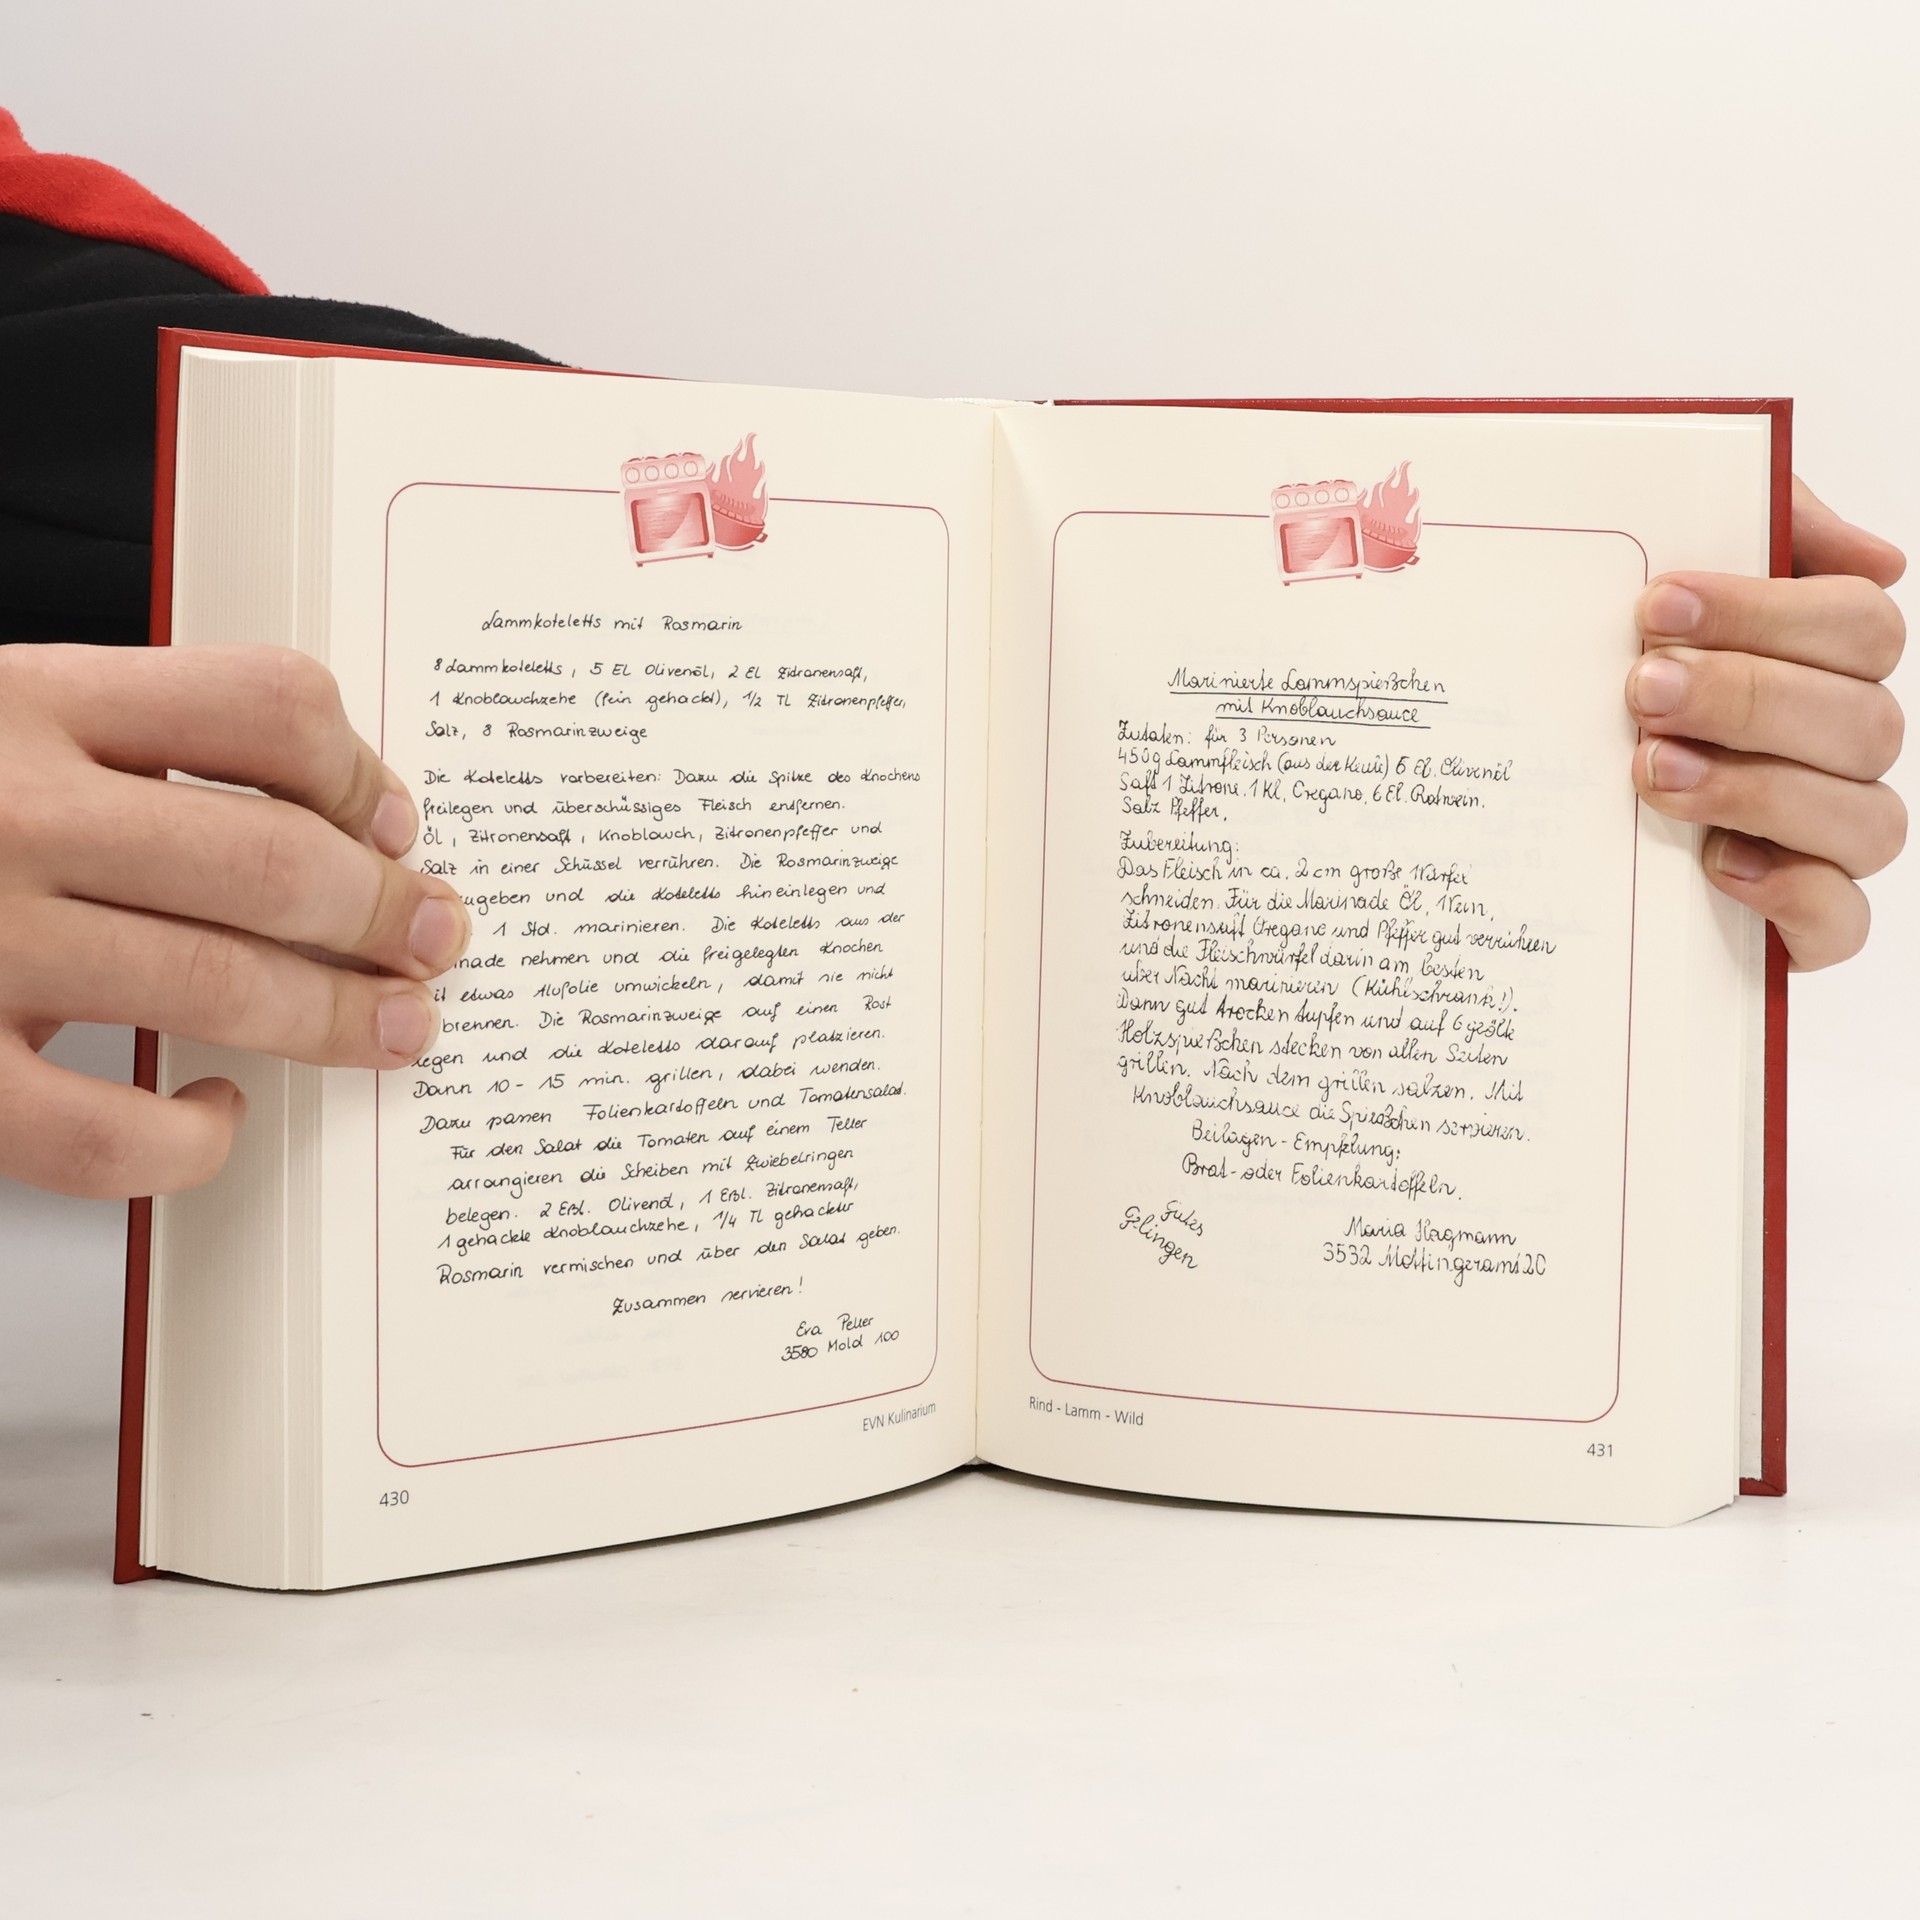 Lammkoteletts mit Rosmarin
8 Lammkoteletts, 5 EL Olivenöl, 2 EL Zitronensaft,
1 Knoblauchzehe (fein gehackt), 1/2 TL Zitronenpfeffer,
Salz, 8 Rosmarinzweige
Die Koteletts vorbereiten: Dazu die Spitze des Knochens
freilegen und überschüssiges Fleisch entfernen.
Öl, Zitronensaft, Knoblauch, Zitronenpfeffer und
Salz in einer Schüssel verrühren. Die Rosmarinzweige
ugeben und die Koteletts hineinlegen und
1 Std. marinieren. Die Koteletts aus der
nade nehmen und die freigelegten Knochen
it etwas Alufolie umwickeln, damit sie nicht
brennen. Die Rosmarinzweige auf einen Rost
legen und die Koteletts darauf platzieren.
Dann 10 - 15 min. grillen, dabei wenden.
Dazu passen Folienkartoffeln und Tomatensalat.
Für den Salat die Tomaten auf einem Teller
arrangieren die Scheiben mit Zwiebelringen
belegen. 2 Eßl. Olivenöl, 1 Eßl. Zitronensaft,
1 gehackte Knoblauchzehe, 1/4 TL gehackter
Rosmarin vermischen und über den Salat geben.
Zusammen servieren!
Eva Peller
3580 Mold 100
EVN Kulinarium
430
Marinierte Lammspießchen
mit Knoblauchsauce
Zutaten: für 3 Personen
450g Lammfleisch (aus der Keule) 6 El. Olivenöl
Saft 1 Zitrone, 1 Kl. Oregano, 6 El. Rotwein.
Salz Pfeffer.
Zubereitung:
Das Fleisch in ca. 2 cm große Würfel
schneiden. Für die Marinade Öl, Wein,
Zitronensaft Oregano und Pfeffer gut verrühren
und die Fleischwürfel darin am besten
über Nacht marinieren (Kühlschrank!).
Dann gut trocken tupfen und auf 6 geölte
Holzspießchen stecken von allen Seiten
grillen. Nach dem grillen salzen. Mit
Knoblauchsauce die Spießchen servieren.
Beilagen - Empfelung:
Brat- oder Folienkartoffeln.
Gutes
Gelingen
Maria Hagmann
3532 Mottingeramt 20
Rind - Lamm - Wild
431